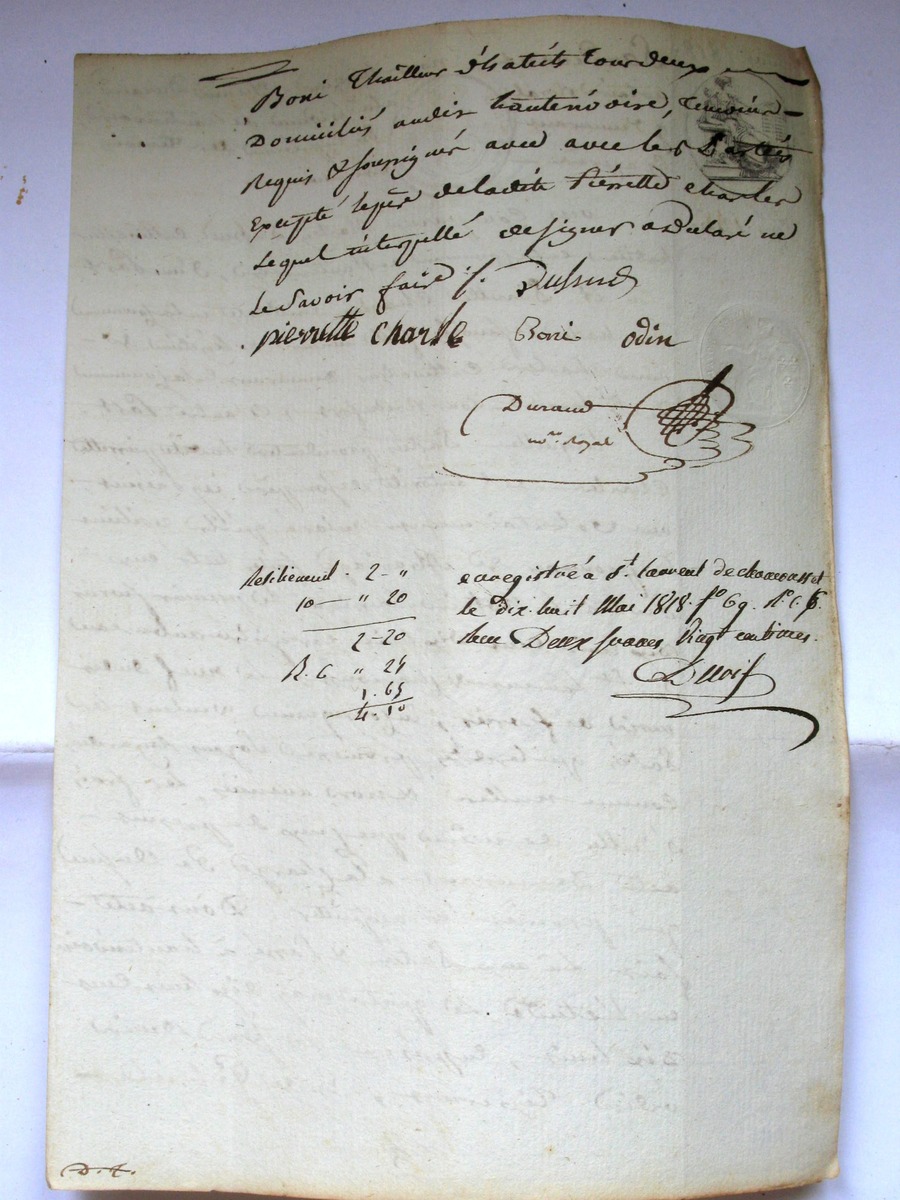 Boni Thailleur d'habits tous deux
Domiciliés audit hautenvoire, temoins
Requis & soussignés avec avec les Parties
Excepté le père de la dite Pierrette charles
Lequel interpellé de signer a déclaré ne
Le Savoir faire /. Dussud
pierrette charle Boni odin
Durand
no.re Royal
Resiliement . 2 - "
10 — " 20
2 - 20
R. 6 " 24
1. 65
4. 10
enregistré à St. laurent de chamousset
le dix huit Mai 1818. fo 69. Ro. C. 6.
Reçu Deux francs Vingt centimes.
D. t.